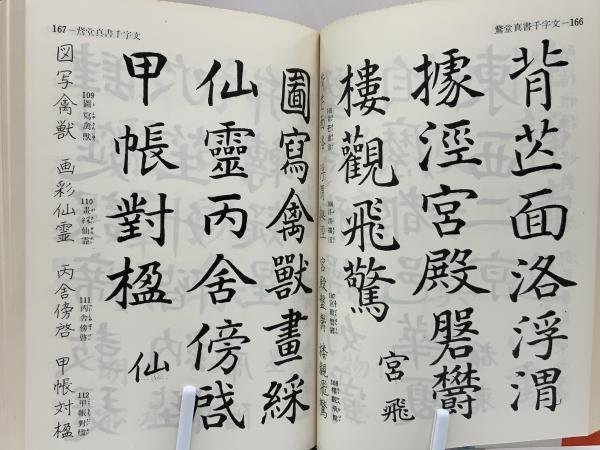 鵞堂真書千字文—166
背芒面洛浮渭
據涇宮殿磐欝
樓觀飛驚
宮飛
167—鵞堂真書千字文
圖寫禽獸畫綵
仙靈丙舍傍啓
甲帳對楹
仙
109
圖寫禽獸
110
畫綵仙靈
111
丙舍傍啓
112
甲帳對楹
図写禽獣 画彩仙霊 丙舎傍啓 甲帳対楹